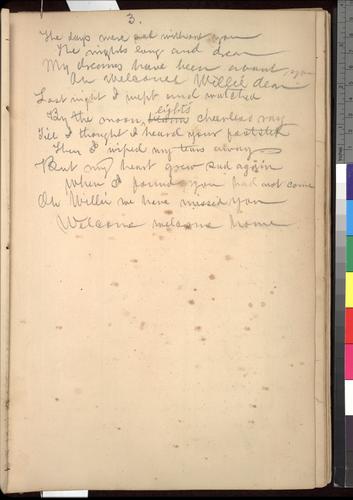 3.
The days were sad without you
The nights long and drear
My dreams have been about you
Oh welcome Willie dear
Last night I wept and watched
eights
By the moon, cheerless ray
Till I thought I heard your footstep
Then I wiped my tears away
But my heart grew sad again
When I found you had not come
Oh Willie we have missed you
Welcome welcome home